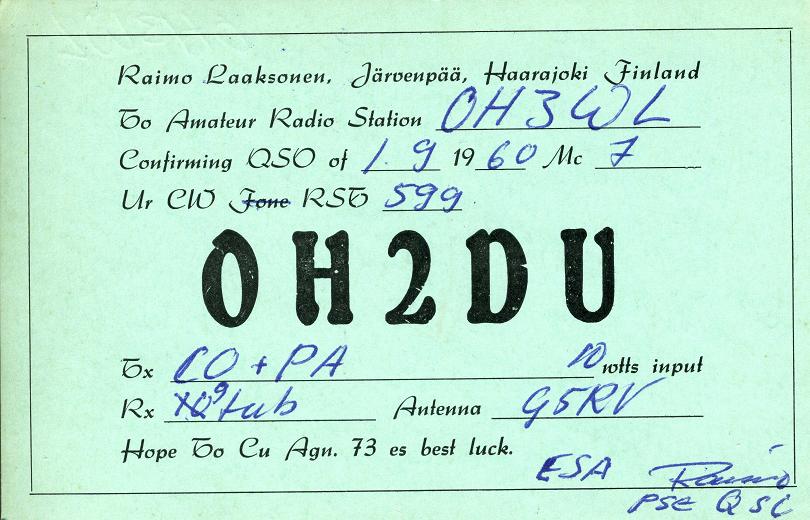 Raimo Laaksonen, Järvenpää, Haarajoki Finland
To Amateur Radio Station OH3WL
Confirming QSO of 1. 9 1960 Mc 7
Ur CW Fone RST 599
OH2DU
Tx CO + PA 10 wtts input
Rx 9 tub Antenna G5RV
Hope To Cu Agn. 73 es best luck.
ESA Raimo
PSE QSL